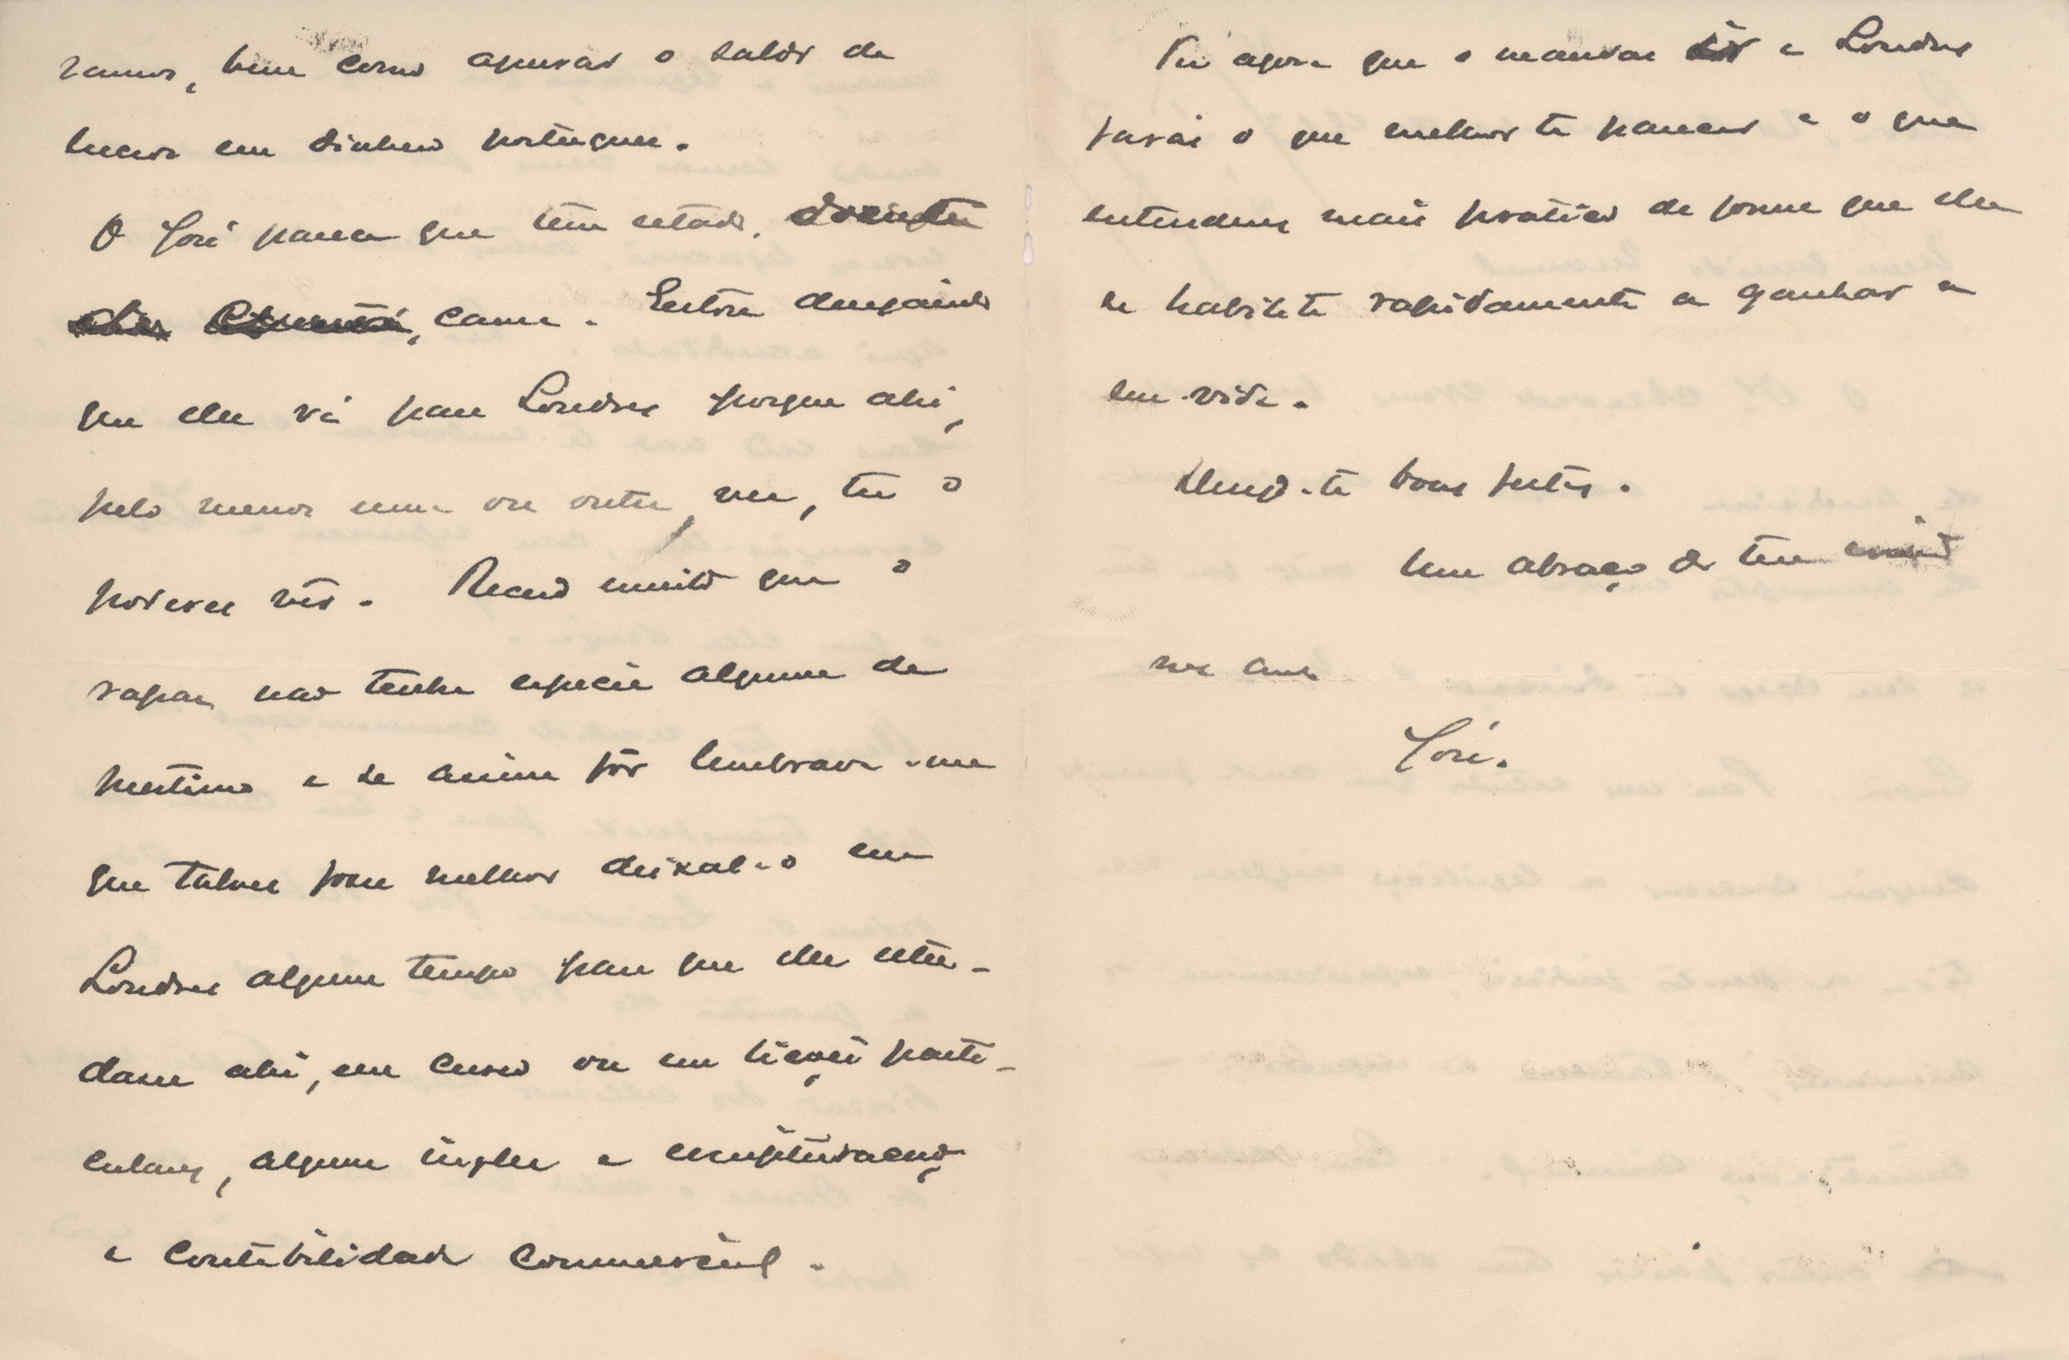 ramos, bem como apurar o valor de
lucros em dinheiro portuguez.
O José parece que tem estado, doente
cama. Estou desejando
que elle vá para Londres porque ahi,
pelo menos uma ou outra vez, tu o
poderas vêr. Receio muito que o
rapaz não tenha especie alguma de
prestimo e se assim fôr lembrava-me
que talvez fosse melhor deixal-o em
Londres algum tempo para que elle estu-
dasse ahi, em curso ou em lições parti-
culares, algum inglez e escripturação
e contabilidade commercial.
Tu agora que o mandas ir a Londres
farás o que melhor te parecer e o que
entenderes mais pratico de forma que elle
se habilite rapidamente a ganhar a
sua vida.
Desejo-te boas festas.
Um abraço do teu amigo
José.